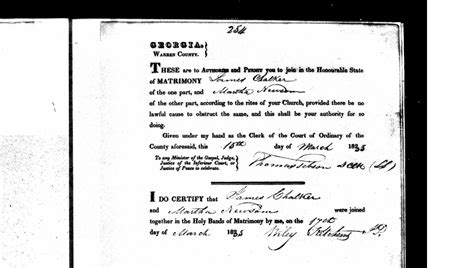 254
GEORGIA.
WARREN COUNTY.
THESE are to AUTHORISE and PERMIT you to join in the Honourable State
of MATRIMONY James Chalker
of the one part, and Martha Newsom
of the other part, according to the rites of your Church, provided there be no
lawful cause to obstruct the same, and this shall be your authority for so
doing.
Given under my hand as the Clerk of the Court of Ordinary of the
County aforesaid, this 16th day of March 1835
To any Minister of the Gospel, Judge,
Justice of the Inferiour Court, or
Justice of Peace to celebrate.
Thomas Gibson
I DO CERTIFY that James Chalker
and Martha Newsom were joined
together in the Holy Bands of Matrimony by me, on the 17th
day of March 1835 Wiley